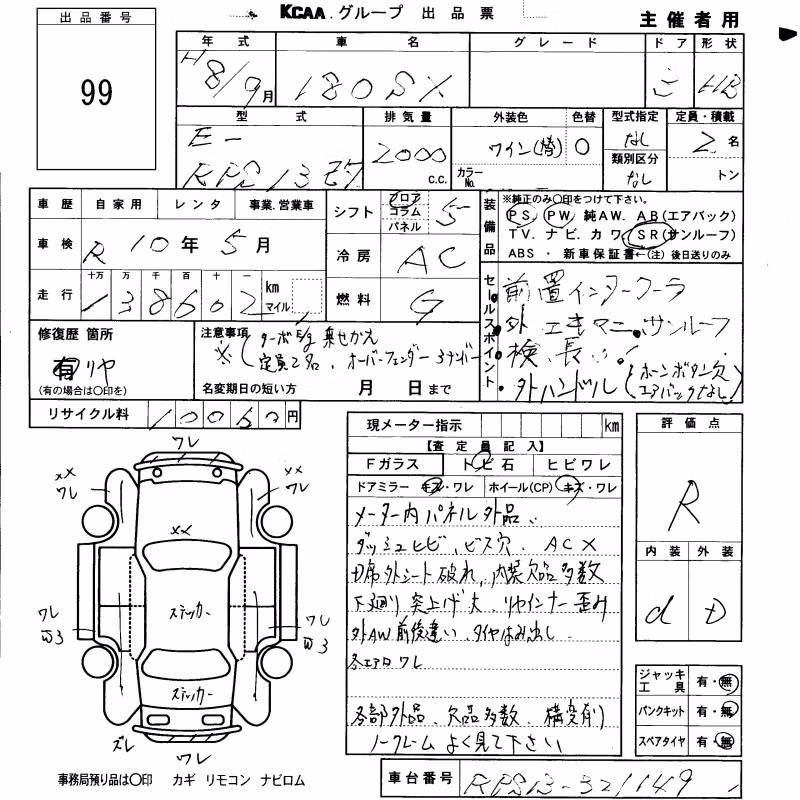 KCAA グループ 出品票
主催者用
出品番号
99
年式 車名 グレード ドア 形状
H8/9月 180SX 三 HB
型式 排気量 外装色 色替 型式指定 定員・積載
E- RPS13改 2000 c.c. ワイン(替) カラーNo. ○ なし 2名
類別区分 なし トン
車歴 自家用 レンタ 事業.営業車
車検 R10年5月
走行 十万 万 千 百 十 一
138602 km マイル
シフト フロア コラム パネル 5
冷房 AC
燃料 G
装備品
※純正のみ〇印をつけて下さい。
PS. PW. 純AW. AB(エアバック)
TV. ナビ. カワ. SR(サンルーフ)
ABS . 新車保証書←(注) 後日送りのみ
セールスポイント
前置インタークーラ
外エキマニ.サンルーフ
検長い
外ハンドル(ホーンボタン欠 エアバックなし)
修復歴 箇所
有 リヤ
(有の場合は〇印を)
注意事項
※(ターボE/g乗せかえ
定員2名、オーバーフェンダー 3ナンバー
名変期日の短い方 月 日まで
リサイクル料 10060円
現メーター指示 km
【査定員記入】
Fガラス トビ石 ヒビワレ
ドアミラー キズ・ワレ ホイール(CP) キズ・ワレ
メーター内パネル外品、
ダッシュヒビ、ビス穴、ACX
D席外シート破れ, 内装欠品多数
下廻り突上げ大、リヤインナー歪み
外AW前後違い、タイヤはみ出し
各エアロワレ
各部外品、欠品多数、構変有り
ノークレーム よく見て下さい
評価点
R
内装 外装
d D
ジャッキ工具 有・無
パンクキット 有・無
スペアタイヤ 有・無
ワレ
XX ワレ
XX ワレ
XX
ステッカー
ワレ
ワレ
ステッカー
ズレ
ワレ
事務局預り品は〇印 カギ リモコン ナビロム
車台番号 RPS13-321149